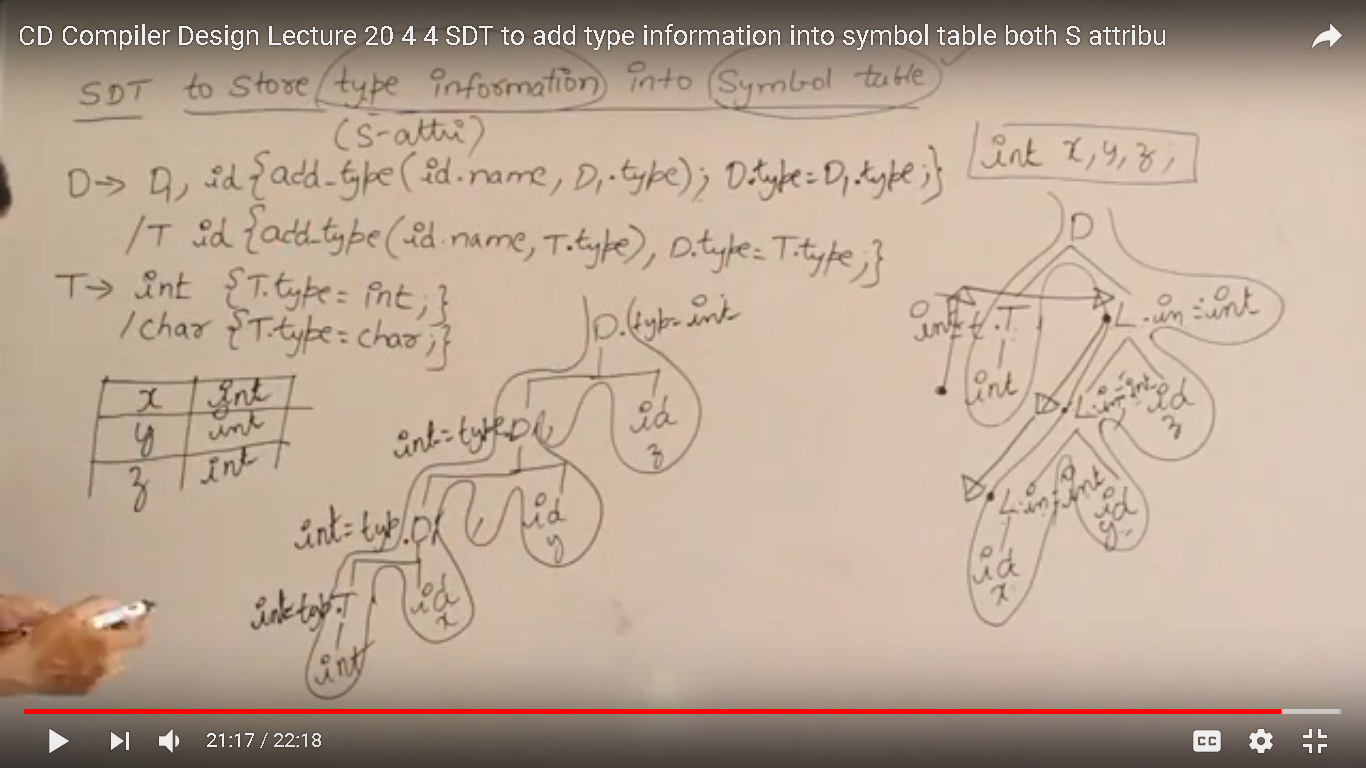 CD Compiler Design Lecture 20 4 4 SDT to add type information into symbol table both S attribu
SDT to Store type information into Symbol table
(S-attri)
int x, y, z;
D→ D1, id {add_type(id.name, D1.type); D.type=D1.type;}
/T id {add_type(id.name, T.type), D.type=T.type;}
T→ int {T.type=int;}
/char {T.type=char;}
x int
y int
z int
D.type=int
int=type.D1
id
z
int=type.D1
id
y
T
id
x
int
D
int=t.T
L.in=int
int
L.in=int
id
z
L.in=int
id
y
id
x
21:17 / 22:18
CC